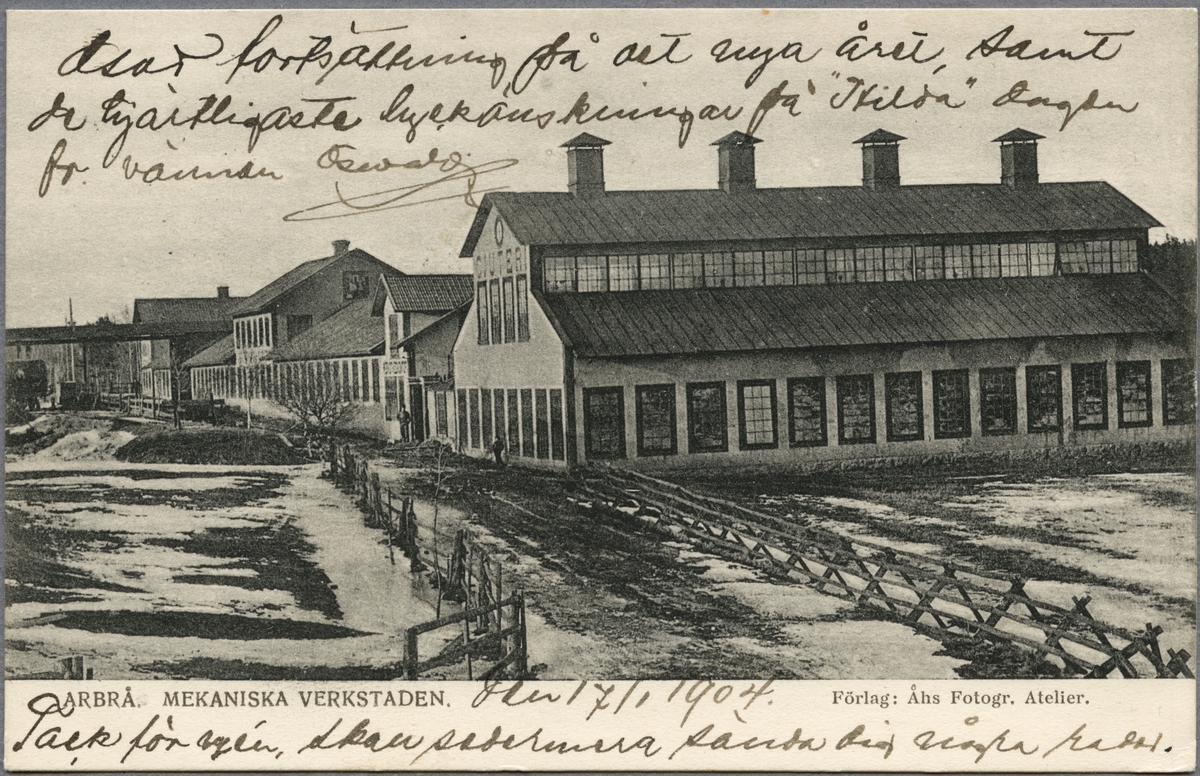 fortsättning på det nya året, samt
de hjärtligaste lyckönskningar på "Hilda" dagen
fr. vännen Oswald
ARBRÅ. MEKANISKA VERKSTADEN. Den 17/1 1904. Förlag: Åhs Fotogr. Atelier.
Tack för vyén, skall sedermera sända dig några rader.